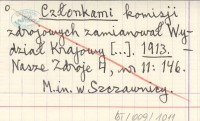 Członkami komisji
zdrojowych zamianował Wy-
dział Krajowy [...]. 1913. —
Nasze Zdroje 4, nr 11: 146.
M. in. w Szczawnicy.
BJ/009/1011